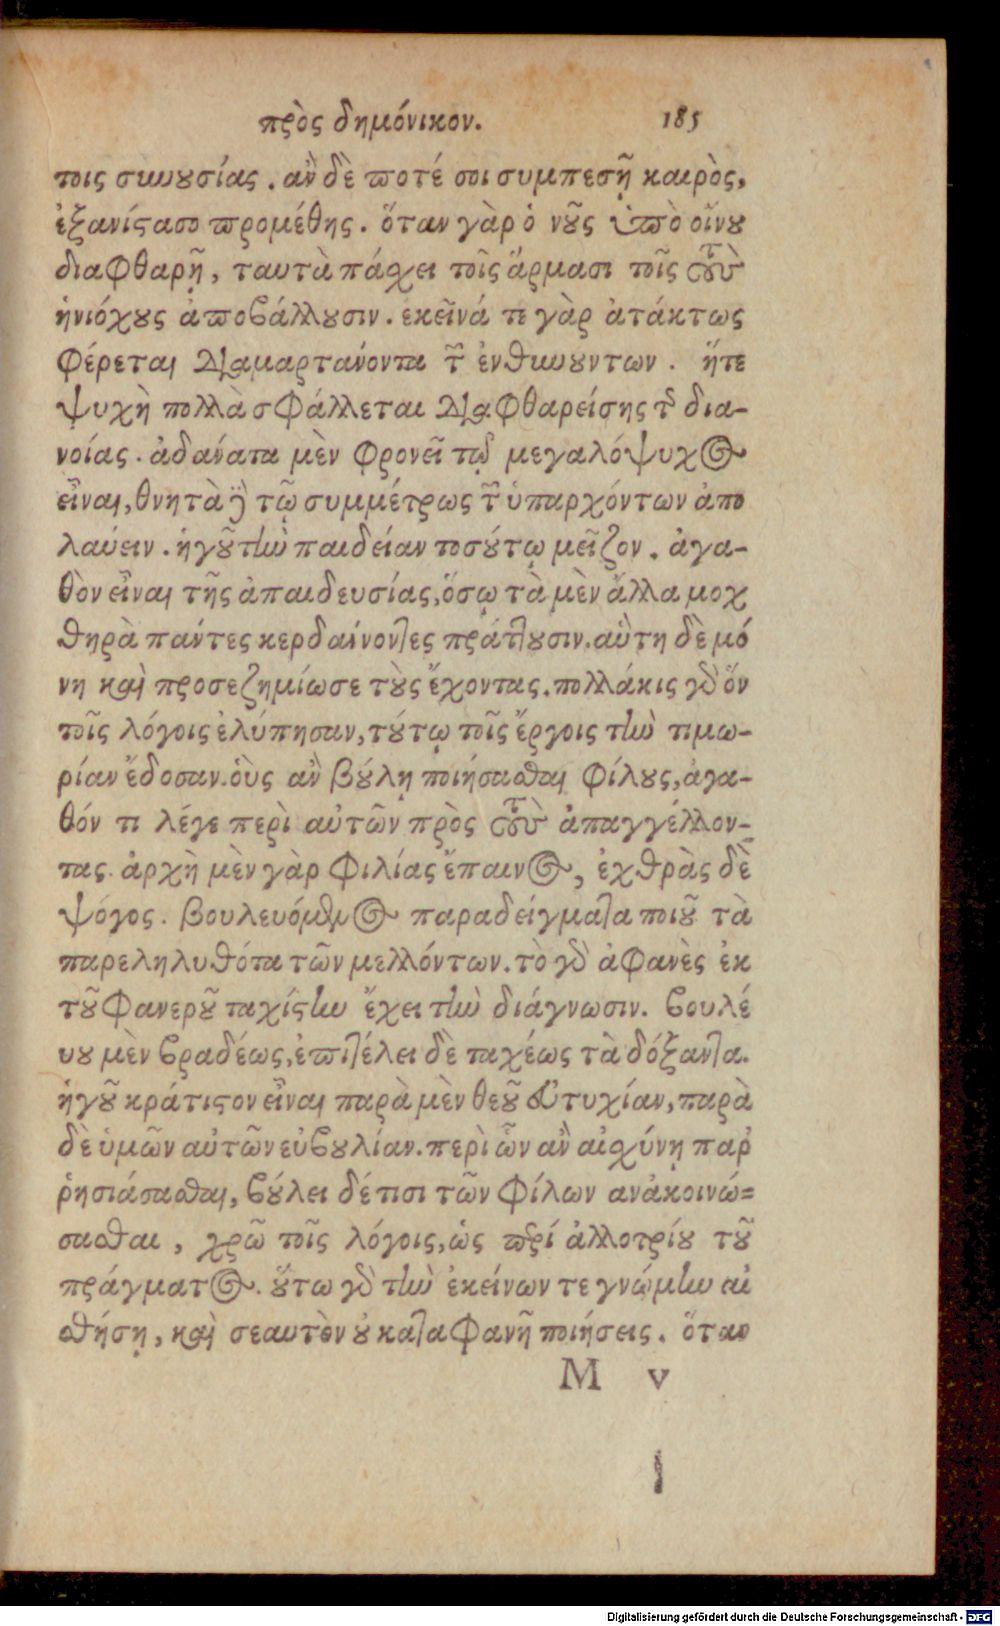 πρὸς δημόνικον. 185
τοις συνουσίας. ἂν δὲ ποτέ σοι συμπεσῇ καιρὸς,
ἐξανίστασο προμέθης. ὅταν γὰρ ὁ νοῦς ὑπὸ οἴνου
διαφθαρῇ, ταυτὰ πάχει τοῖς ἅρμασι τοῖς τοὺς
ἡνιόχους ἀποβάλλουσιν. ἐκεῖνά τε γὰρ ἀτάκτως
φέρεται διαμαρτάνοντα τῶν ἐυθυνούντων. ἥτε
ψυχὴ πολλὰ σφάλλεται διαφθαρείσης τῆς δια-
νοίας. ἀδανατα μὲν φρονεῖ τῷ μεγαλόψυχος
εἶναι, θνητὰ δὲ τῷ συμμέτρως τῶν ὑπαρχόντων ἀπο
λαύειν. ἡγοῦ τὴν παιδείαν τοσούτῳ μεῖζον. ἀγα-
θὸν εἶναι τῆς ἀπαιδευσίας, ὅσῳ τὰ μὲν ἄλλα μοχ
θηρὰ πάντες κερδαίνοντες πράττουσιν. αὕτη δὲ μό
νη καὶ προσεζημίωσε τοὺς ἔχοντας. πολλάκις γὰρ ὃν
τοῖς λόγοις ἐλύπησαν, τούτῳ τοῖς ἔργοις τὴν τιμω-
ρίαν ἔδοσαν. οὓς ἂν βούλῃ ποιήσασθαι φίλους, ἀγα-
θόν τι λέγε περὶ αὐτῶν πρὸς τοὺς ἀπαγγέλλον-
τας. ἀρχὴ μὲν γὰρ φιλίας ἔπαινος, ἐχθρὰς δὲ
ψόγος. βουλευόμενος παραδείγματα ποιοῦ τὰ
παρεληλυθότα τῶν μελλόντων. τὸ γὰρ ἀφανὲς ἐκ
τοῦ φανεροῦ ταχίστην ἔχει τὴν διάγνωσιν. βουλέ
υου μὲν βραδέως, ἐπιτέλει δὲ ταχέως τὰ δόξαντα.
ἡγοῦ κράτιστον εἶναι παρὰ μὲν θεοῦ εὐτυχίαν, παρὰ
δὲ ὑμῶν αὐτῶν εὐβουλίαν. περὶ ὧν ἂν αἰσχύνῃ παρ
ῥησιάσασθαι, βούλει δέ τισι τῶν φίλων ανἀκοινώ-
σασθαι, χρῶ τοῖς λόγοις, ὡς περί ἀλλοτρίου τοῦ
πράγματος. οὕτω γὰρ τὴν ἐκείνων τε γνώμην αἰ
σθήσῃ, καὶ σεαυτὸν οὐ καταφανῆ ποιήσεις. ὅταν
M v
Digitalisierung gefördert durch die Deutsche Forschungsgemeinschaft - DFG